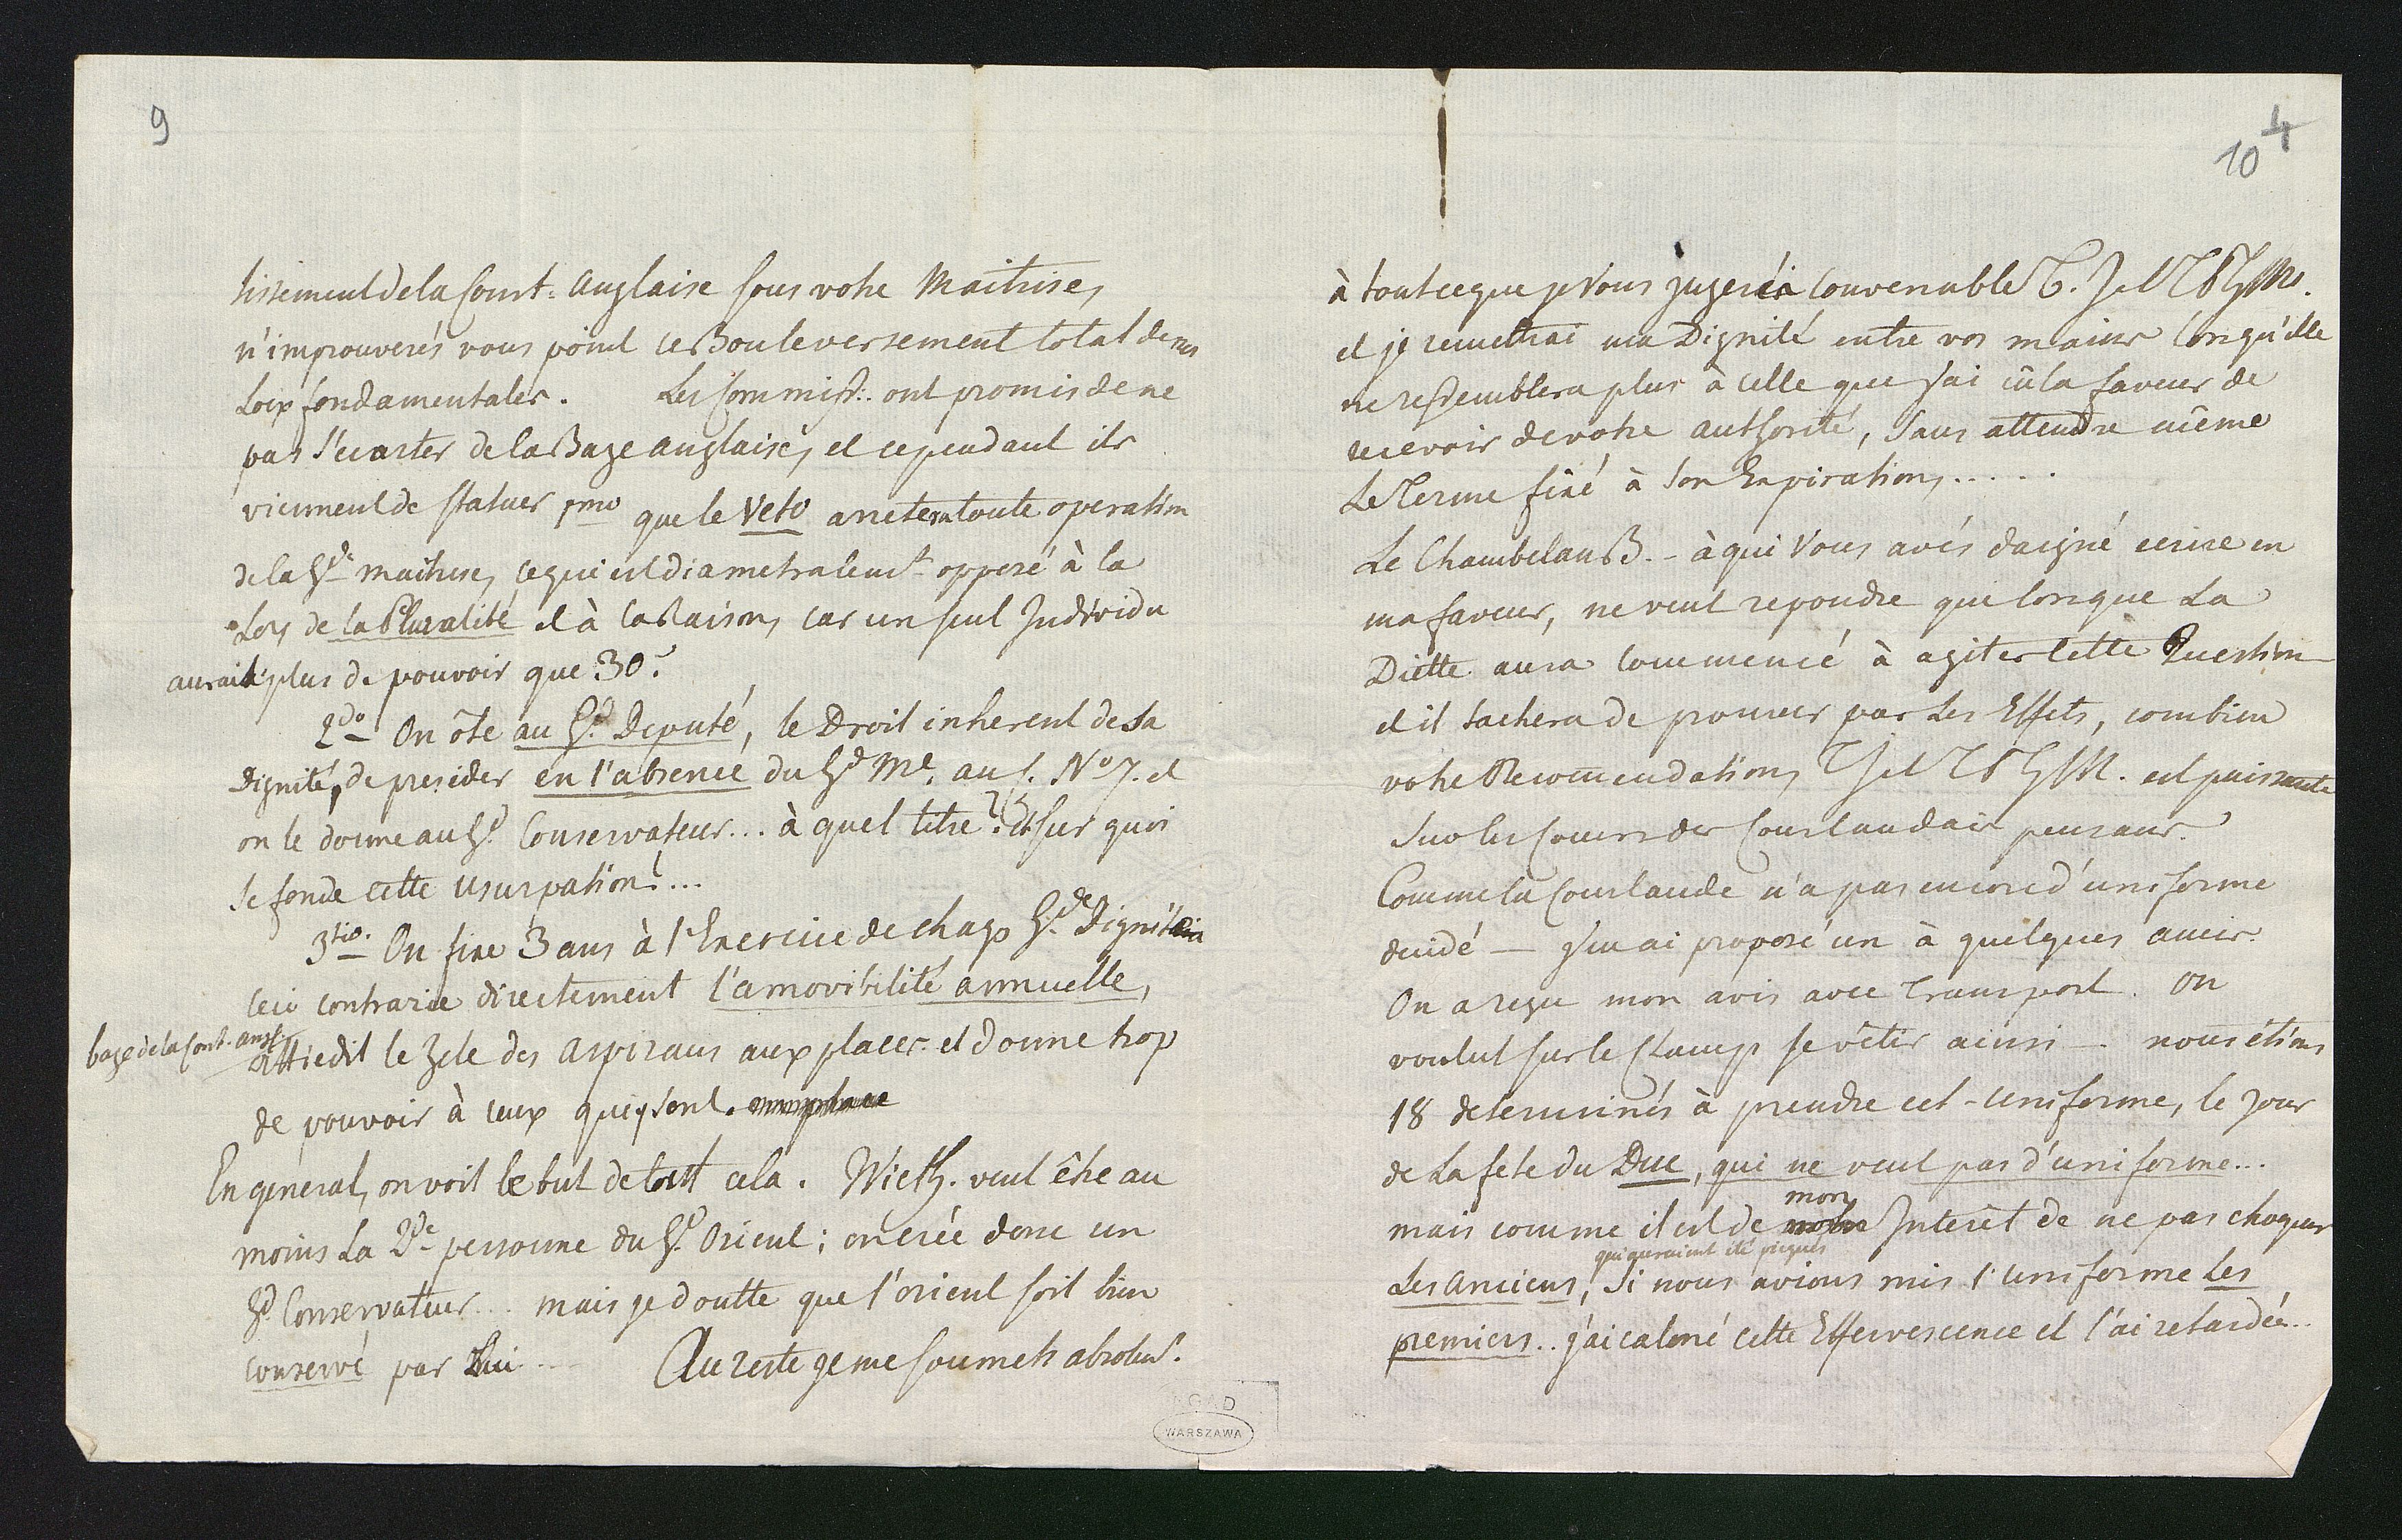 9
tissement de la Const. anglaise sous votre Maitrise,
n'improuverés vous point ce Bouleversement total de nos
Loix fondamentales. Les Commiss: ont promis de ne
pas s'écarter de la Baze anglaise, et cependant ils
viennent de statuer 1mo que le Veto arretera toute operation
de la Gde maitrise, ce qui est diametralemt opposé à la
Loy de la Pluralité et à la Raison, car un seul Individu
aurait plus de pouvoir que 30.
2do On ôte au Gd Deputé, le Droit inherent de sa
Dignité, de presider en l'absence du Gd Me, au §. No 7. et
on le donne au Gd Conservateur... à quel titre? et sur quoi
se fonde cette usurpation?...
3tio. On fixe 3 ans à l'Exercice de chaqe Gd Dignitaire
ceci contrarie directement l'amovibilité annuelle,
baze de la Const. angl.
attiedit le Zele des aspirans aux places et donne trop
de pouvoir à ceux qui y sont.
En general, on voit le but de tout cela. Wielh. veut être au
moins La 2de personne du Gd Orient; on crée donc un
Gd Conservateur... mais je doutte que l'orient soit bien
conservé par Lui... Au reste je me soumets absolut.
AGAD
WARSZAWA
4
10
à tout ce que Vous jugerés Convenable T. I. et T. P. G. M.
et je remettrai ma Dignité entre vos mains lorsqu'elle
ne ressemblera plus à celle que j'ai eû la faveur de
recevoir de votre authorité, sans attendre même
Le Terme fixé à son Expiration.....
Le Chambelan B. - à qui Vous avés daigné ecrire en
ma faveur, ne veut repondre que lorsque La
Diette aura commencé à agiter cette Question
et il tachera de prouver par Les Effets, combien
votre Recommendation, T I et T P G M. est puissante
sur les Coeurs des Courlandais pensans.
Comme la Courlande n'a pas encore d'uniforme
decidé — j'en ai proposé un à quelques amis.
On a reçu mon avis avec transport. On
voulut sur le champ se vêtir ainsi — nous étions
18 determinés à prendre cet uniforme, le jour
de La fete du Duc, qui ne veut pas d'uniforme...
mais comme il est de mon Interêt de ne pas choquer
qui auraient été piqués
Les anciens, si nous avions mis l'uniforme Les
premiers.. j'ai calmé cette Effervescence et l'ai retardée..